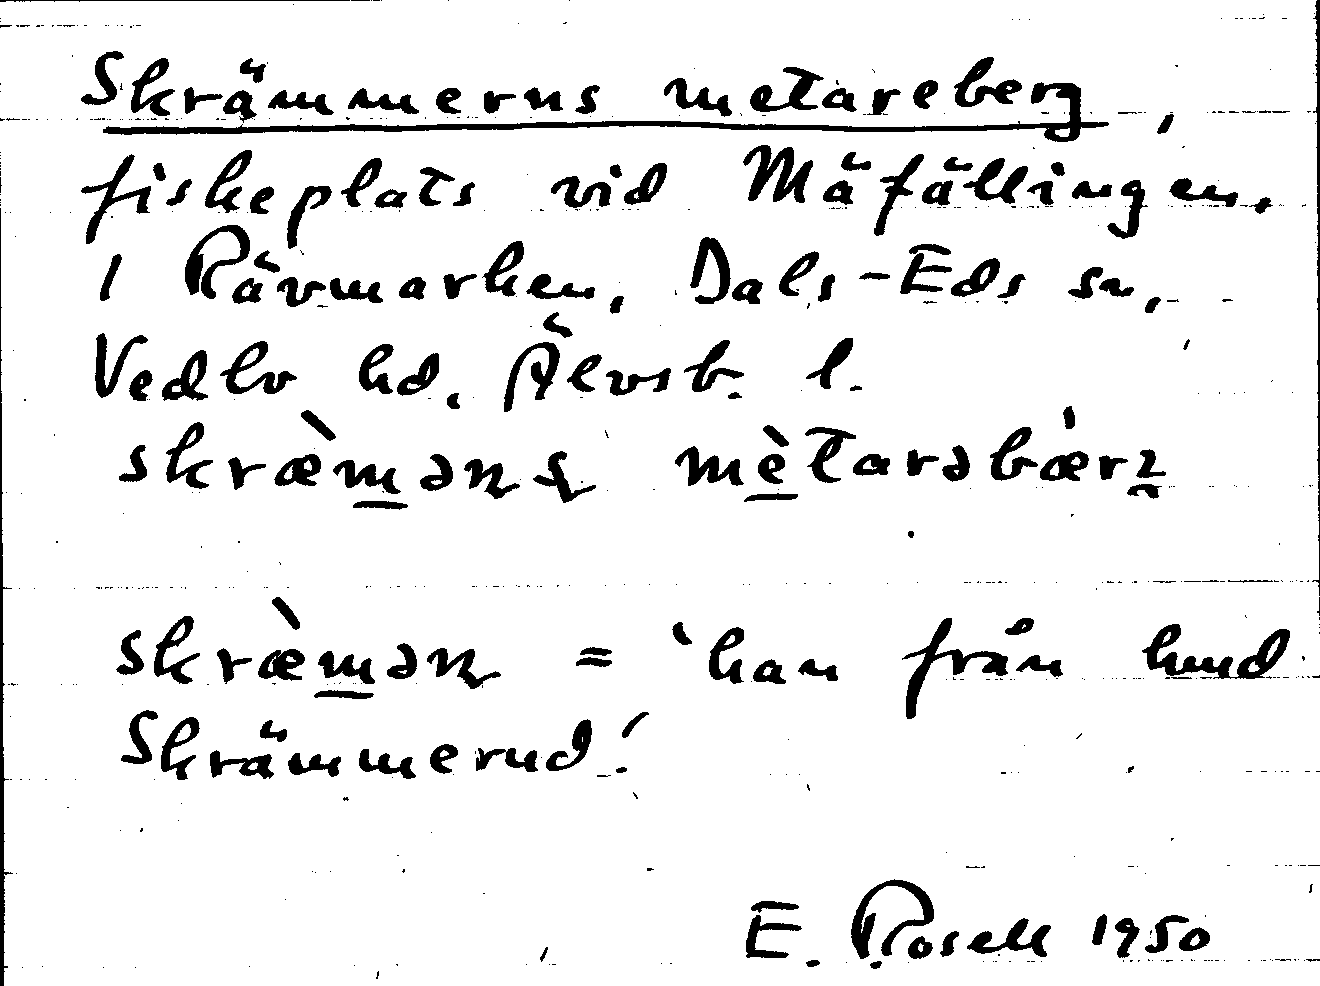 Skrämmerns metareberg,
fiskeplats vid Mäfällingen,
i Rävmarken, Dals-Eds sn,
Vedbo hd, Älvsb. l.
skræ̀mənʂ mètarəbærʒ
skræ̀mən = 'han från hmd
Skrämmerud.'
E. Rosell 1950